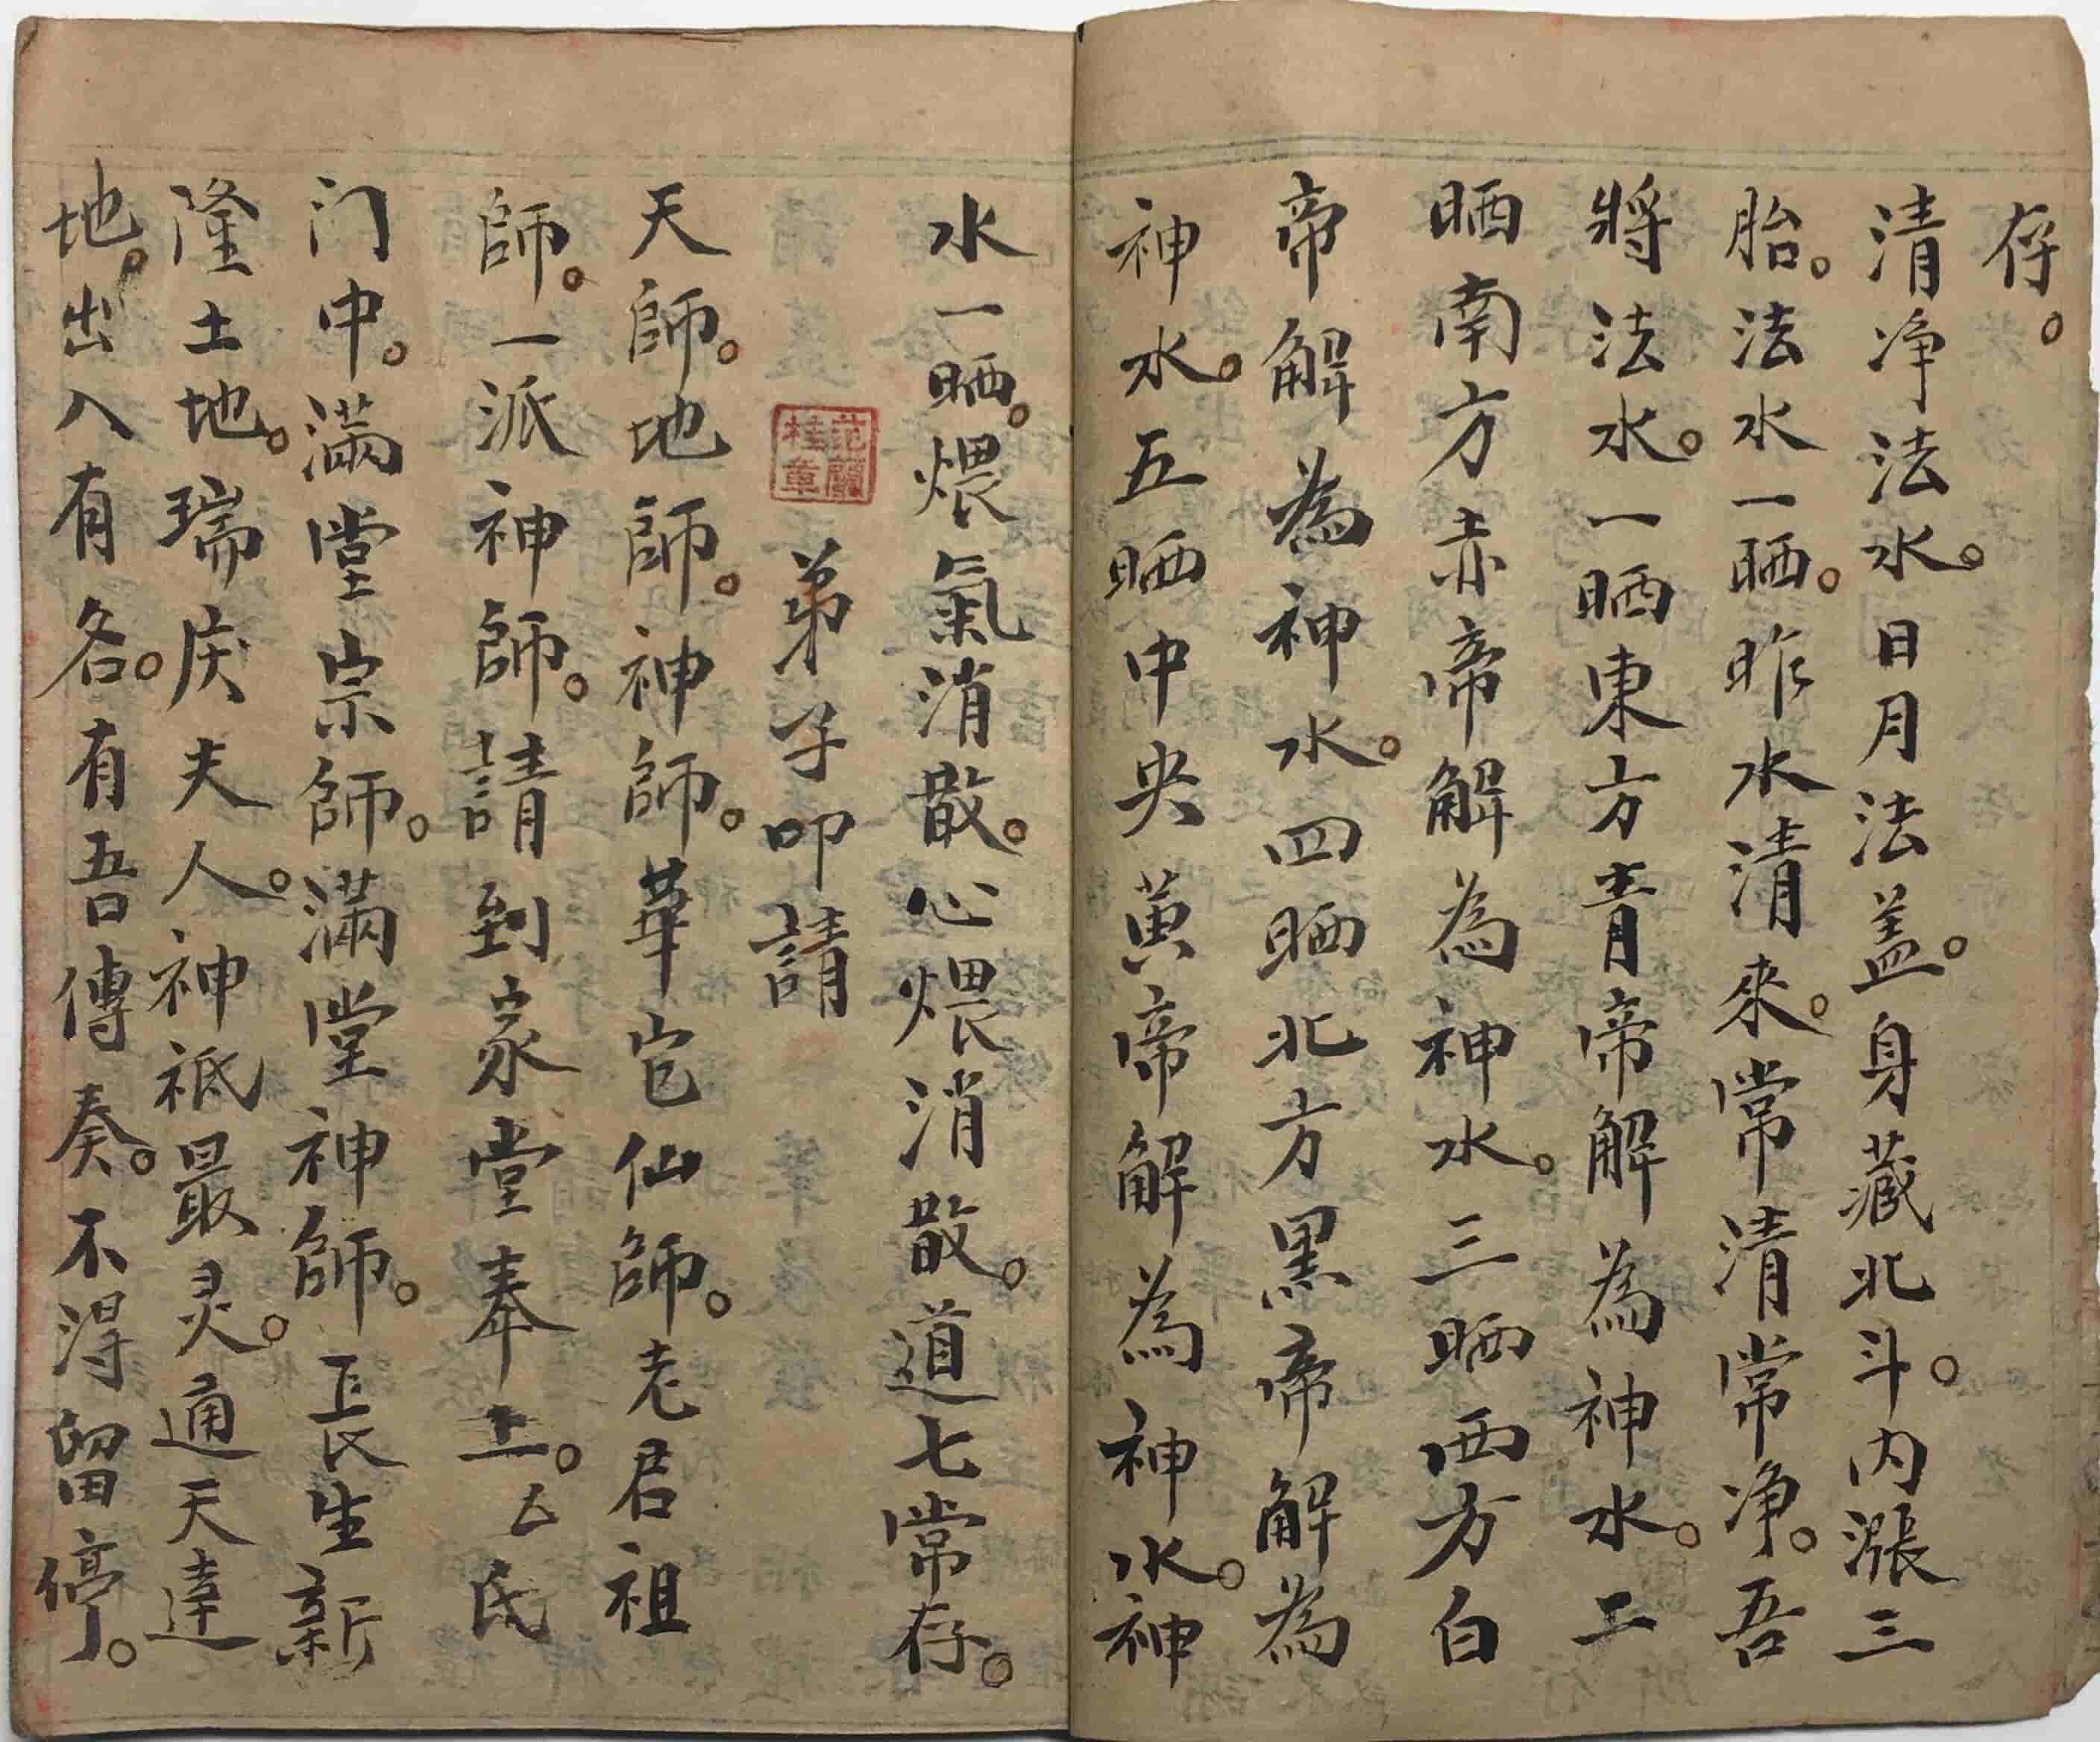 存。
清净法水。日月法盖。身藏北斗。内漲三
胎。法水一晒。昨水清來。常清常净。吾
將法水。一晒東方青帝解為神水。二
晒南方赤帝解為神水。三晒西方白
帝解為神水。四晒北方黑帝解為
神水。五晒中央黄帝解為神水。神
水一晒。煨氣消散。心煨消散。道七常存。
范蘭桂章
弟子叩請
天師。地師。神師。華宅仙師。老君祖
師。一派神師。請到家堂奉土。厶氏
门中。滿堂宗師。滿堂神師。長生新
隆土地。瑞庆夫人。神祗最灵。通天達
地。出入有各。有吾傳奏。不淂留停。